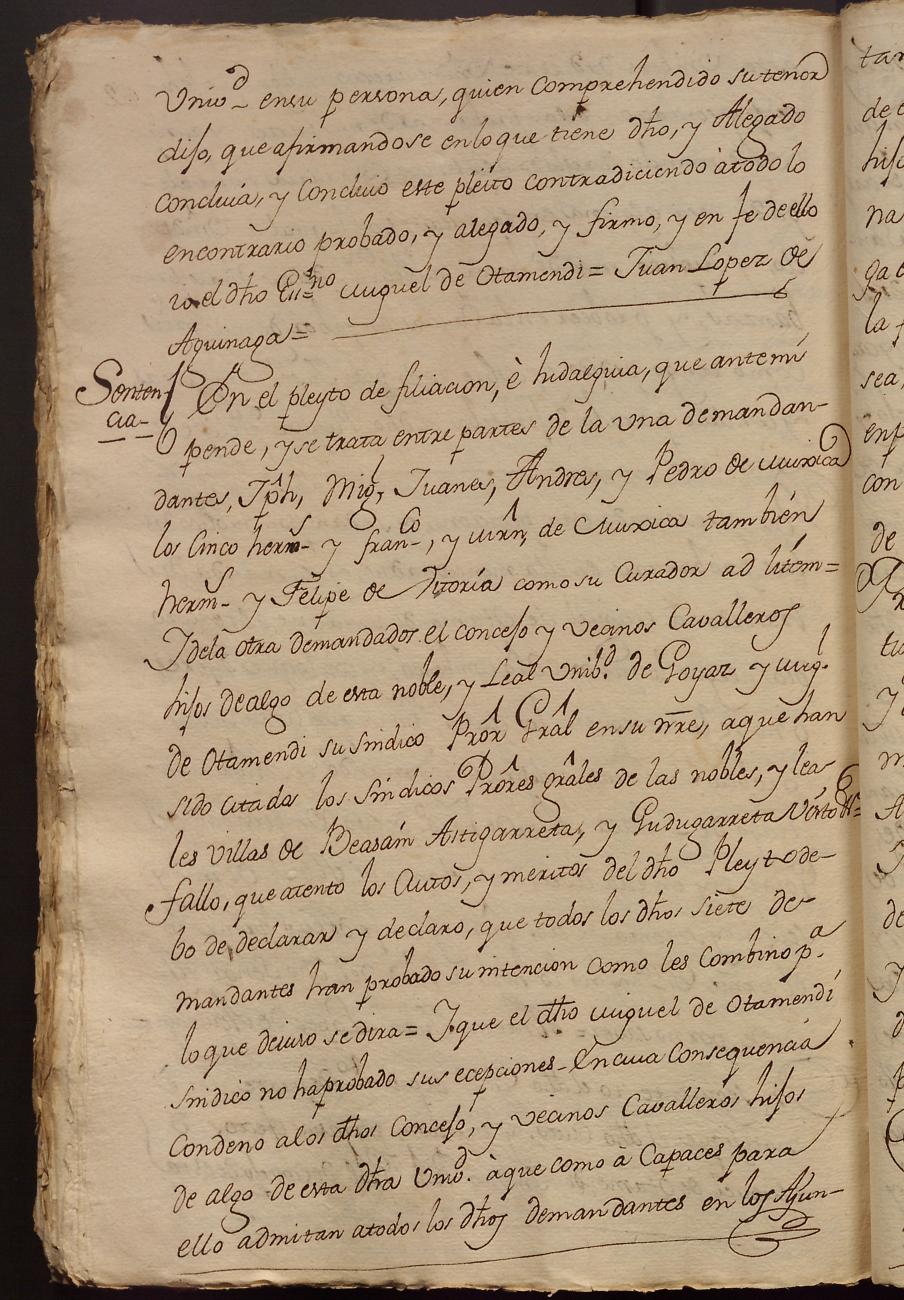 Uniuᵈ ensu persona, quien Comprehendido su tenor
diso, que afirmandose enloque tiene dho, y Alegado
concluia, y Concluio este pleito contradiciendo àtodo lo
encontrario probado, y alegado, y firmo, y en fe de ello
io el dho Essⁿᵒ Miguel de Otamendi = Juan Lopez de
Aguinaga =
Senten-
cia-
En el pleyto de filiacion, è hidalguia, que antemi
pende, y se trata entre partes de la Una demandan-
dantes, Jph, Migˡ, Juanes, Andres, y Pedro de Muxica
los Cinco hermˢ y franᶜᵒ, y Mrn, de Muxica también
hermˢ y Felipe de Vitoria como su Curador ad litem=
Y dela otra demandados el concejo y vecinos Cavalleros
hijos de algo de esta noble, y Leal Unibᵈ. de Goyaz y Migˡ.
de Otamendi su sindico Prôr Grâl ensu nr̃e, aque han
sido citados los síndicos Prôres grâles de las nobles, y lea-
les villas de Beasaín Astigarreta, y Gudugarreta
fallo, que atento los Autos, y meritos del dho Pleyto de-
bo de declarar y declaro, que todos los dhos siete de-
mandantes han probado su intencion como les Combino pᵃ.
lo que deiuso se dira = Y que el dho Miguel de Otamendi
sindico no ha probado sus ecepciones - En cuia Consequencia
Condeno alos dhos Concejo, y vecinos Cavalleros hijos
de algo de esta dha Uniuᵈ. àque como à Capaces para
ello admitan atodos los dhos demandantes en los Ayun-
tan
de
na
la
sea,
enp
con
de